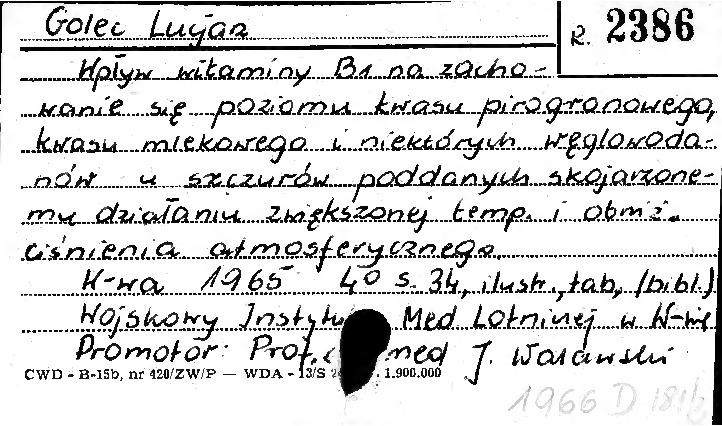 Golec Lucjan
R. 2386
Wpływ witaminy B1 na zacho-
wanie się poziomu kwasu pirogronowego,
kwasu mlekowego i niektórych węglowoda-
nów u szczurów poddanych skojarzone-
mu działaniu zwiększonej temp. i obniż.
ciśnienia atmosferycznego.
W-wa 1965 4° s. 34, ilustr., tab, /bibl./
Wojskowy Instytu Med Lotniczej w W-wie
Promotor: Prof. med J. Walawski
CWD - B-15b, nr 420/ZW/P — WDA - 13/S 1.900.000
1966 D